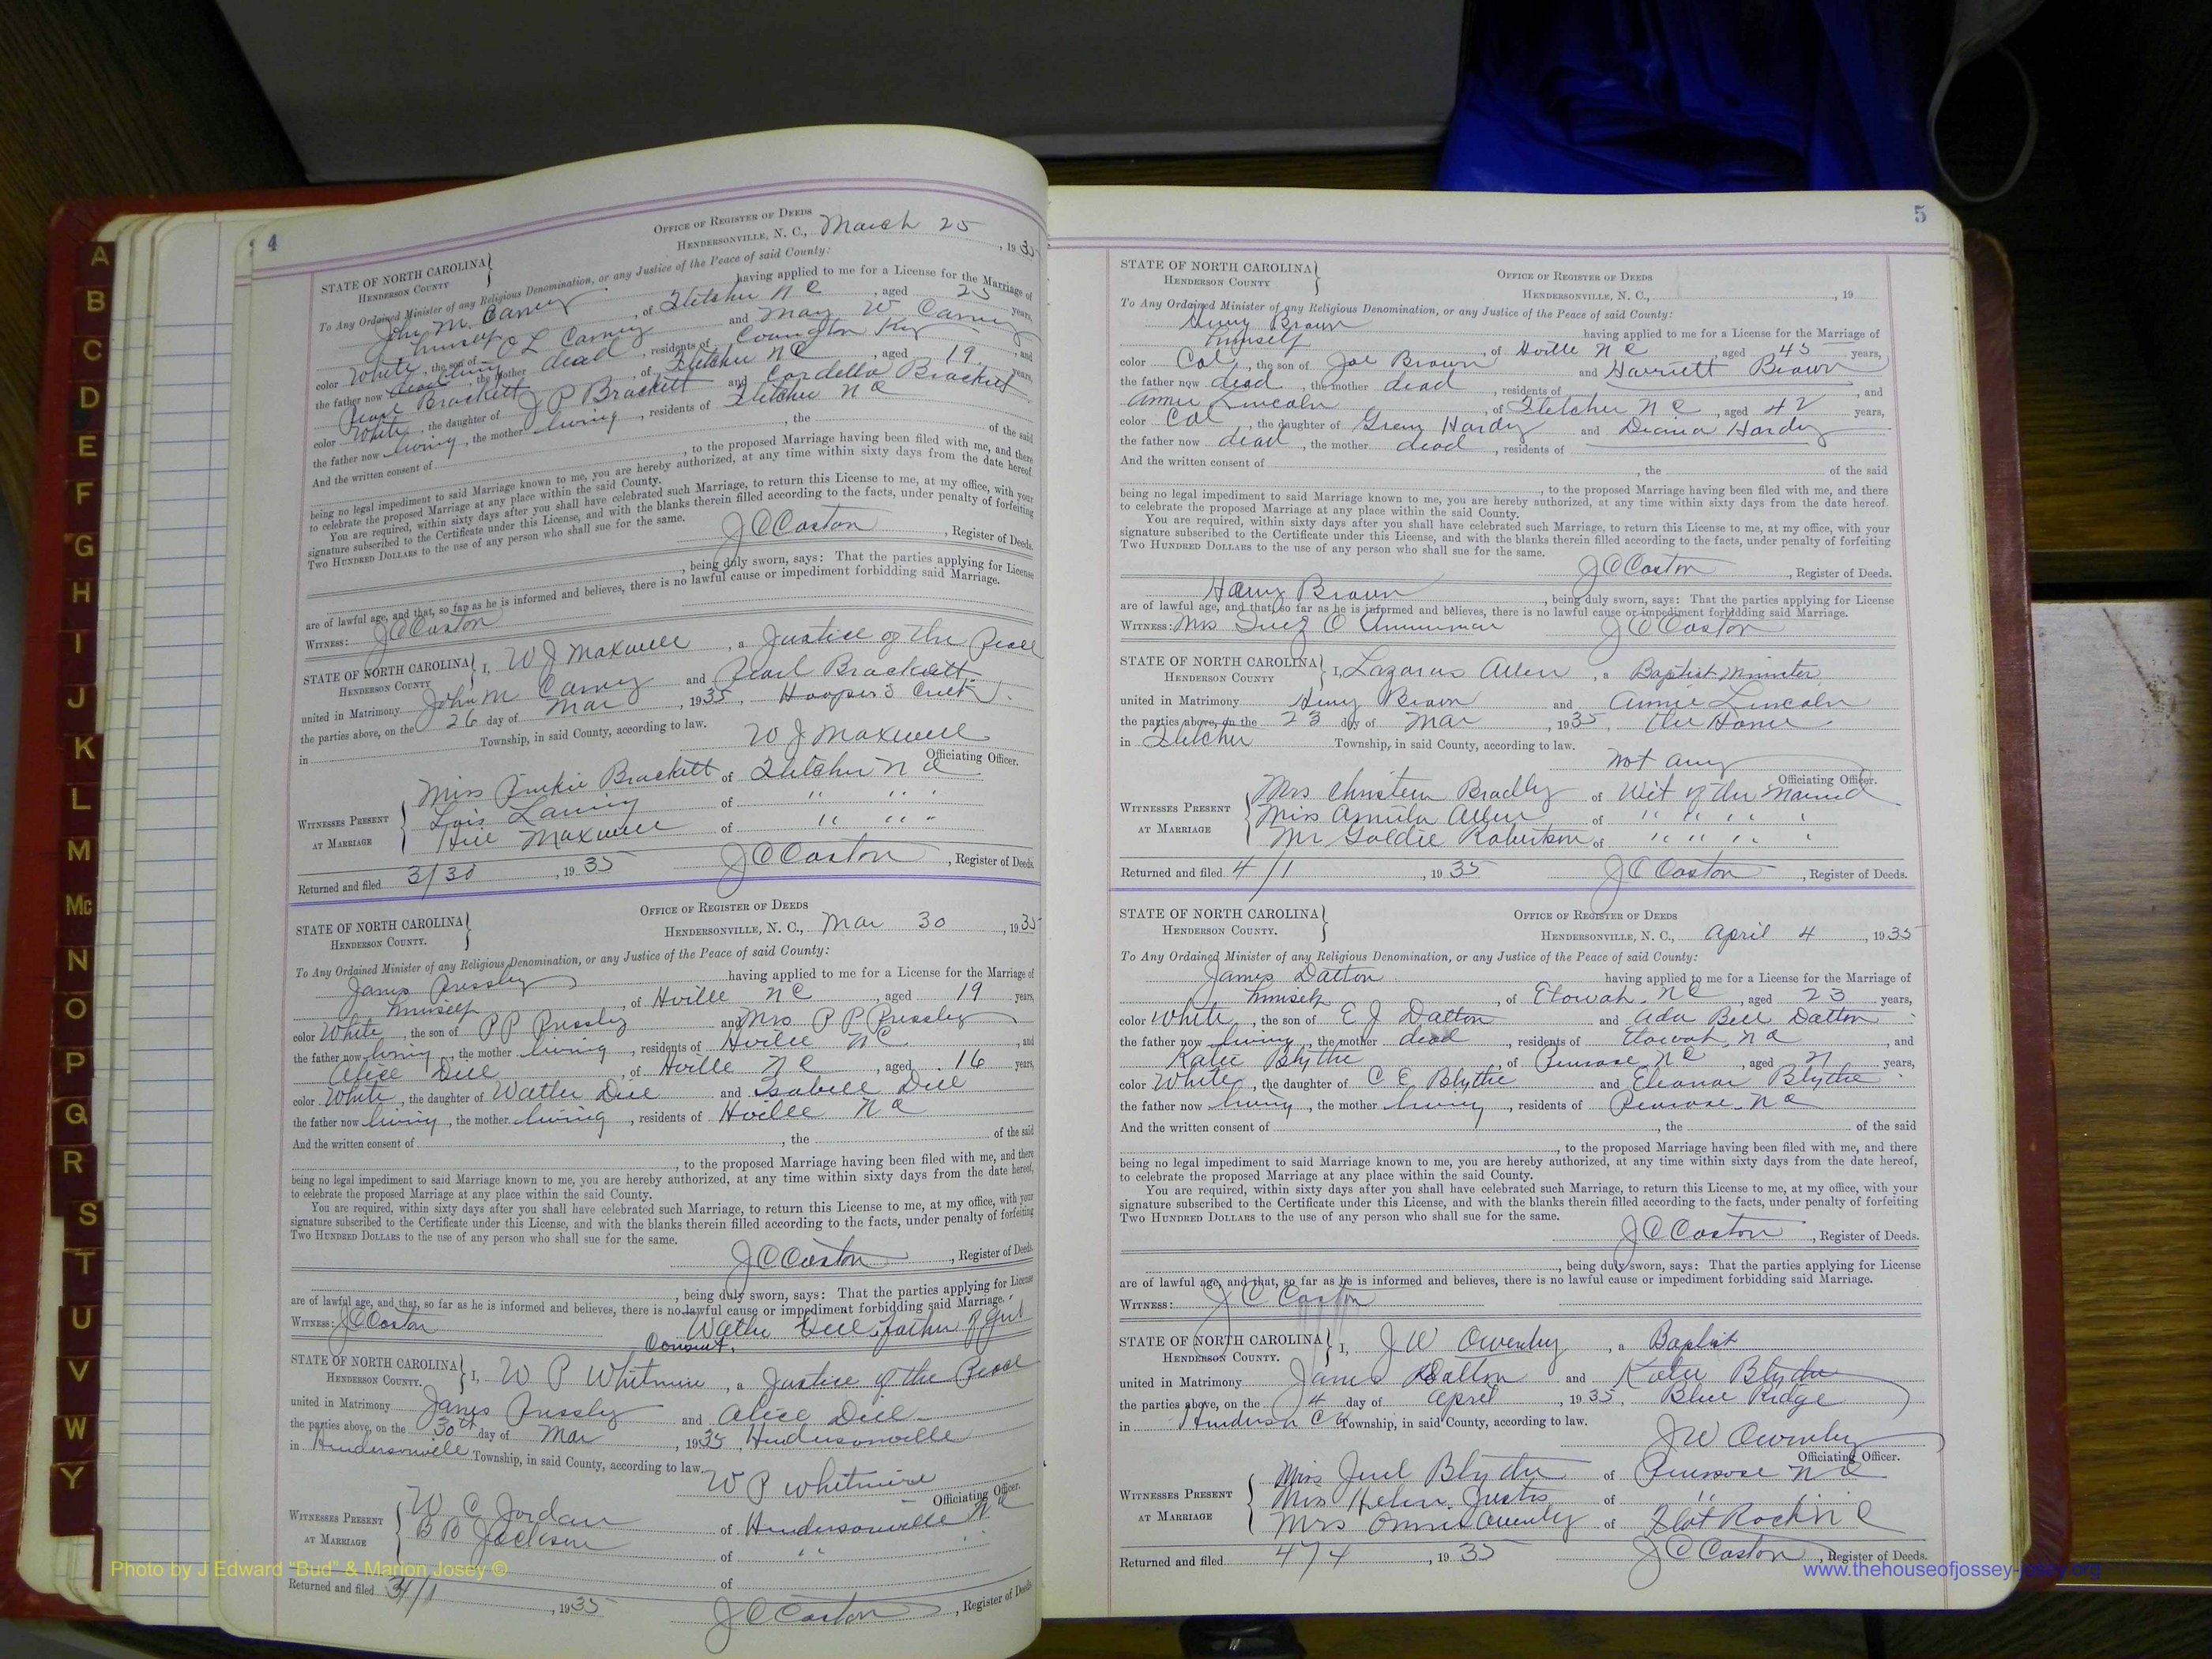 A
B
C
D
E
F
G
H
I
J
K
L
M
Mc
N
O
P
Q
R
S
T
U
V
W
Y
4
OFFICE OF REGISTER OF DEEDS
HENDERSONVILLE, N. C., March 25, 1935
STATE OF NORTH CAROLINA
HENDERSON COUNTY
To Any Ordained Minister of any Religious Denomination, or any Justice of the Peace of said County:
John M. Carney having applied to me for a License for the Marriage of
himself, of Fletcher N C, aged 25 years,
color White, the son of O L Carney and May W Carney
the father now living, the mother dead, residents of Covington Ky, and
Pearl Brackett, of Fletcher N C, aged 19 years,
color White, the daughter of J P Brackett and Cordella Brackett
the father now living, the mother living, residents of Fletcher N C
And the written consent of , the of the said
, to the proposed Marriage having been filed with me, and there
being no legal impediment to said Marriage known to me, you are hereby authorized, at any time within sixty days from the date hereof,
to celebrate the proposed Marriage at any place within the said County.
You are required, within sixty days after you shall have celebrated such Marriage, to return this License to me, at my office, with your
signature subscribed to the Certificate under this License, and with the blanks therein filled according to the facts, under penalty of forfeiting
TWO HUNDRED DOLLARS to the use of any person who shall sue for the same.
J C Coston, Register of Deeds.
, being duly sworn, says: That the parties applying for License
are of lawful age, and that, so far as he is informed and believes, there is no lawful cause or impediment forbidding said Marriage.
WITNESS: J C Coston
STATE OF NORTH CAROLINA
HENDERSON COUNTY
I, W J Maxwell, a Justice of the Peace
united in Matrimony John M Carney and Pearl Brackett
the parties above, on the 26 day of Mar, 1935, Hooper's Creek
in Township, in said County, according to law.
W J Maxwell
Officiating Officer.
WITNESSES PRESENT
AT MARRIAGE
Miss Pinkie Brackett of Fletcher N C
Lois of " " "
Maxwell of " " "
Returned and filed 3/30, 1935 J C Coston, Register of Deeds.
OFFICE OF REGISTER OF DEEDS
HENDERSONVILLE, N. C., Mar 30, 1935
STATE OF NORTH CAROLINA
HENDERSON COUNTY.
To Any Ordained Minister of any Religious Denomination, or any Justice of the Peace of said County:
James Pressley having applied to me for a License for the Marriage of
himself, of Hville N C, aged 19 years,
color White, the son of P P Pressley and Mrs P P Pressley
the father now living, the mother living, residents of Hville N C, and
Alice Dill, of Hville N C, aged 16 years,
color White, the daughter of Walter Dill and Isabell Dill
the father now living, the mother living, residents of Hville N C
And the written consent of , the of the said
, to the proposed Marriage having been filed with me, and there
being no legal impediment to said Marriage known to me, you are hereby authorized, at any time within sixty days from the date hereof,
to celebrate the proposed Marriage at any place within the said County.
You are required, within sixty days after you shall have celebrated such Marriage, to return this License to me, at my office, with your
signature subscribed to the Certificate under this License, and with the blanks therein filled according to the facts, under penalty of forfeiting
TWO HUNDRED DOLLARS to the use of any person who shall sue for the same.
J C Coston, Register of Deeds.
, being duly sworn, says: That the parties applying for License
are of lawful age, and that, so far as he is informed and believes, there is no lawful cause or impediment forbidding said Marriage.
WITNESS: J C Coston Walter Dill, father of girl
Consent.
STATE OF NORTH CAROLINA
HENDERSON COUNTY.
I, W P Whitmire, a Justice of the Peace
united in Matrimony James Pressley and Alice Dill
the parties above, on the 30th day of Mar, 1935, Hendersonville
in Hendersonville Township, in said County, according to law.
W P Whitmire
Officiating Officer.
WITNESSES PRESENT
AT MARRIAGE
W C Jordan of Hendersonville N C
B B Jackson of " "
of
Returned and filed 1935 J C Coston, Register of Deeds
5
STATE OF NORTH CAROLINA
HENDERSON COUNTY
OFFICE OF REGISTER OF DEEDS
HENDERSONVILLE, N. C., , 19
To Any Ordained Minister of any Religious Denomination, or any Justice of the Peace of said County:
Henry Brown having applied to me for a License for the Marriage of
himself, of Hville N C, aged 45 years,
color Col, the son of Joe Brown and Harriett Brown
the father now dead, the mother dead, residents of , and
Annie Lincoln, of Fletcher N C, aged 42 years,
color Col, the daughter of Hardy and Hardy
the father now dead, the mother dead, residents of
And the written consent of , the of the said
, to the proposed Marriage having been filed with me, and there
being no legal impediment to said Marriage known to me, you are hereby authorized, at any time within sixty days from the date hereof.
to celebrate the proposed Marriage at any place within the said County.
You are required, within sixty days after you shall have celebrated such Marriage, to return this License to me, at my office, with your
signature subscribed to the Certificate under this License, and with the blanks therein filled according to the facts, under penalty of forfeiting
TWO HUNDRED DOLLARS to the use of any person who shall sue for the same.
J C Coston, Register of Deeds.
Henry Brown, being duly sworn, says: That the parties applying for License
are of lawful age, and that, so far as he is informed and believes, there is no lawful cause or impediment forbidding said Marriage.
WITNESS: Mrs J C Coston
STATE OF NORTH CAROLINA
HENDERSON COUNTY
I, Lazarus Allen, a Baptist Minister
united in Matrimony Henry Brown and Annie Lincoln
the parties above, on the 23 day of Mar, 1935, the Home
in Fletcher Township, in said County, according to law.
not any
Officiating Officer.
WITNESSES PRESENT
AT MARRIAGE
Mrs Christern Bradley of Wit of the Married
Miss Allen of " " " "
Mr Goldie Robertson of " " " "
Returned and filed 4/1, 1935 J C Coston, Register of Deeds.
STATE OF NORTH CAROLINA
HENDERSON COUNTY.
OFFICE OF REGISTER OF DEEDS
HENDERSONVILLE, N. C., April 4, 1935
To Any Ordained Minister of any Religious Denomination, or any Justice of the Peace of said County:
James Dalton having applied to me for a License for the Marriage of
himself, of Etowah, N C, aged 23 years,
color White, the son of E J Dalton and Ada Bell Dalton
the father now living, the mother dead, residents of Etowah, N C, and
Katie Blythe, of Penrose N C, aged 21 years,
color White, the daughter of C E Blythe and Eleanor Blythe
the father now living, the mother living, residents of Penrose, N C
And the written consent of , the of the said
, to the proposed Marriage having been filed with me, and there
being no legal impediment to said Marriage known to me, you are hereby authorized, at any time within sixty days from the date hereof,
to celebrate the proposed Marriage at any place within the said County.
You are required, within sixty days after you shall have celebrated such Marriage, to return this License to me, at my office, with your
signature subscribed to the Certificate under this License, and with the blanks therein filled according to the facts, under penalty of forfeiting
TWO HUNDRED DOLLARS to the use of any person who shall sue for the same.
J C Coston, Register of Deeds.
, being duly sworn, says: That the parties applying for License
are of lawful age, and that, so far as he is informed and believes, there is no lawful cause or impediment forbidding said Marriage.
WITNESS: J C Coston
STATE OF NORTH CAROLINA
HENDERSON COUNTY.
I, J W Owenby, a Baptist
united in Matrimony James Dalton and Katie Blythe
the parties above, on the 4 day of April, 1935, Blue Ridge
in Henderson Co Township, in said County, according to law.
J W Owenby
Officiating Officer.
WITNESSES PRESENT
AT MARRIAGE
Miss Blythe of Penrose N C
Miss Helen Justus of "
Mrs Owenby of Flat Rock N C
Returned and filed 4/4, 1935 J C Coston, Register of Deeds.
Photo by J Edward "Bud" & Marion Josey ©
www.thehouseofjossey-josey.org